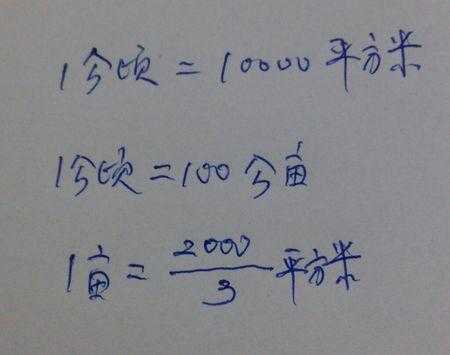 1公顷=10000平方米
1公顷=100公亩
1亩=2000/3平方米